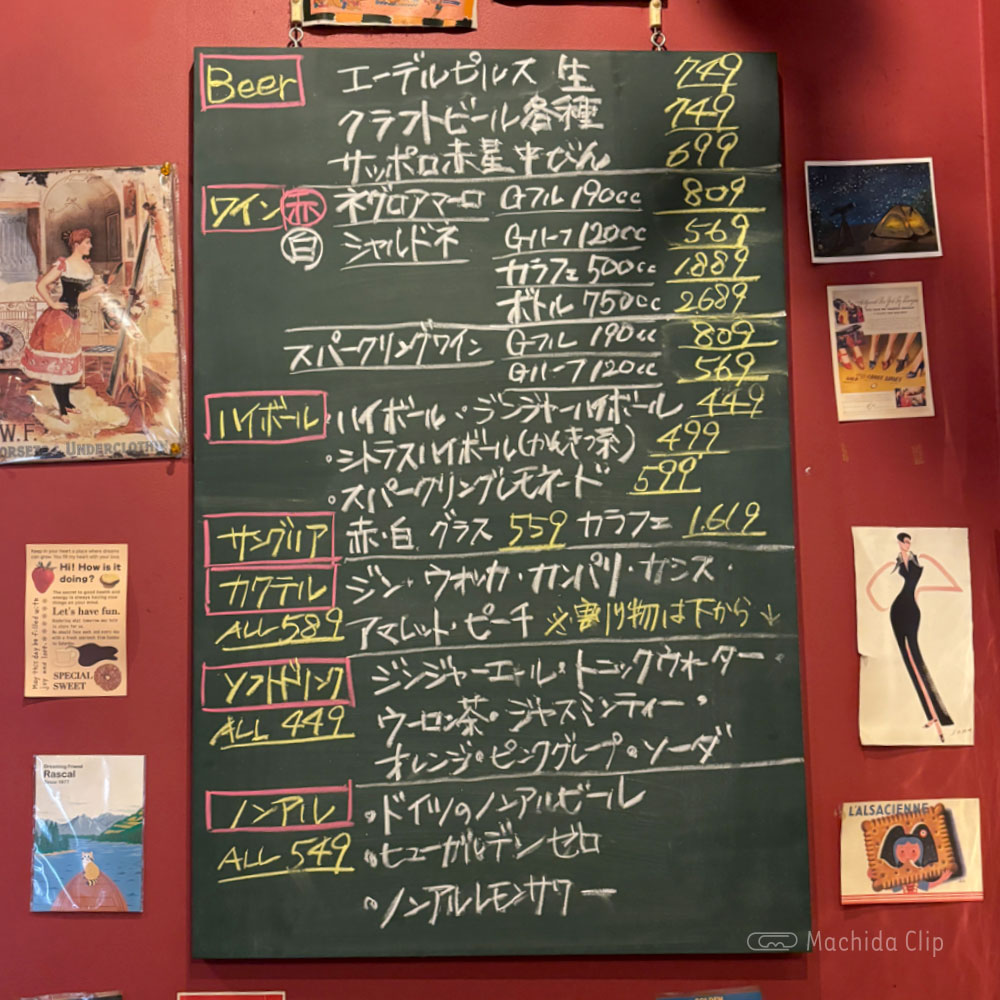 Beer エーデルピルス 生 749
クラフトビール各種 749
サッポロ赤星中びん 699
ワイン 赤 ネグロアマーロ Gフル 190cc 809
白 シャルドネ Gハーフ 120cc 569
カラフェ 500cc 1.889
ボトル 750cc 2.689
スパークリングワイン Gフル 190cc 809
Gハーフ 120cc 569
ハイボール ・ハイボール・ジンジャーハイボール 449
・シトラスハイボール(かんきつ茶) 499
・スパークリングレモネード 599
サングリア 赤・白 グラス 559 カラフェ 1.619
カクテル ジン・ウォッカ・カンパリ・カシス・
ALL 589 アマレット・ピーチ ※割り物は下から↓
ソフトドリンク ジンジャーエール・トニックウォーター・
ALL 449 ウーロン茶・ジャスミンティー・
オレンジ・ピンクグレープ・ソーダ
ノンアル ・ドイツのノンアルビール
ALL 549 ・ヒューガルデンゼロ
・ノンアルレモンサワー
W.F.
UNDERCLOTHI
Hi! How is it
doing?
Let's have fun.
SPECIAL
SWEET
Rascal
L'ALSACIENNE
Machida Clip